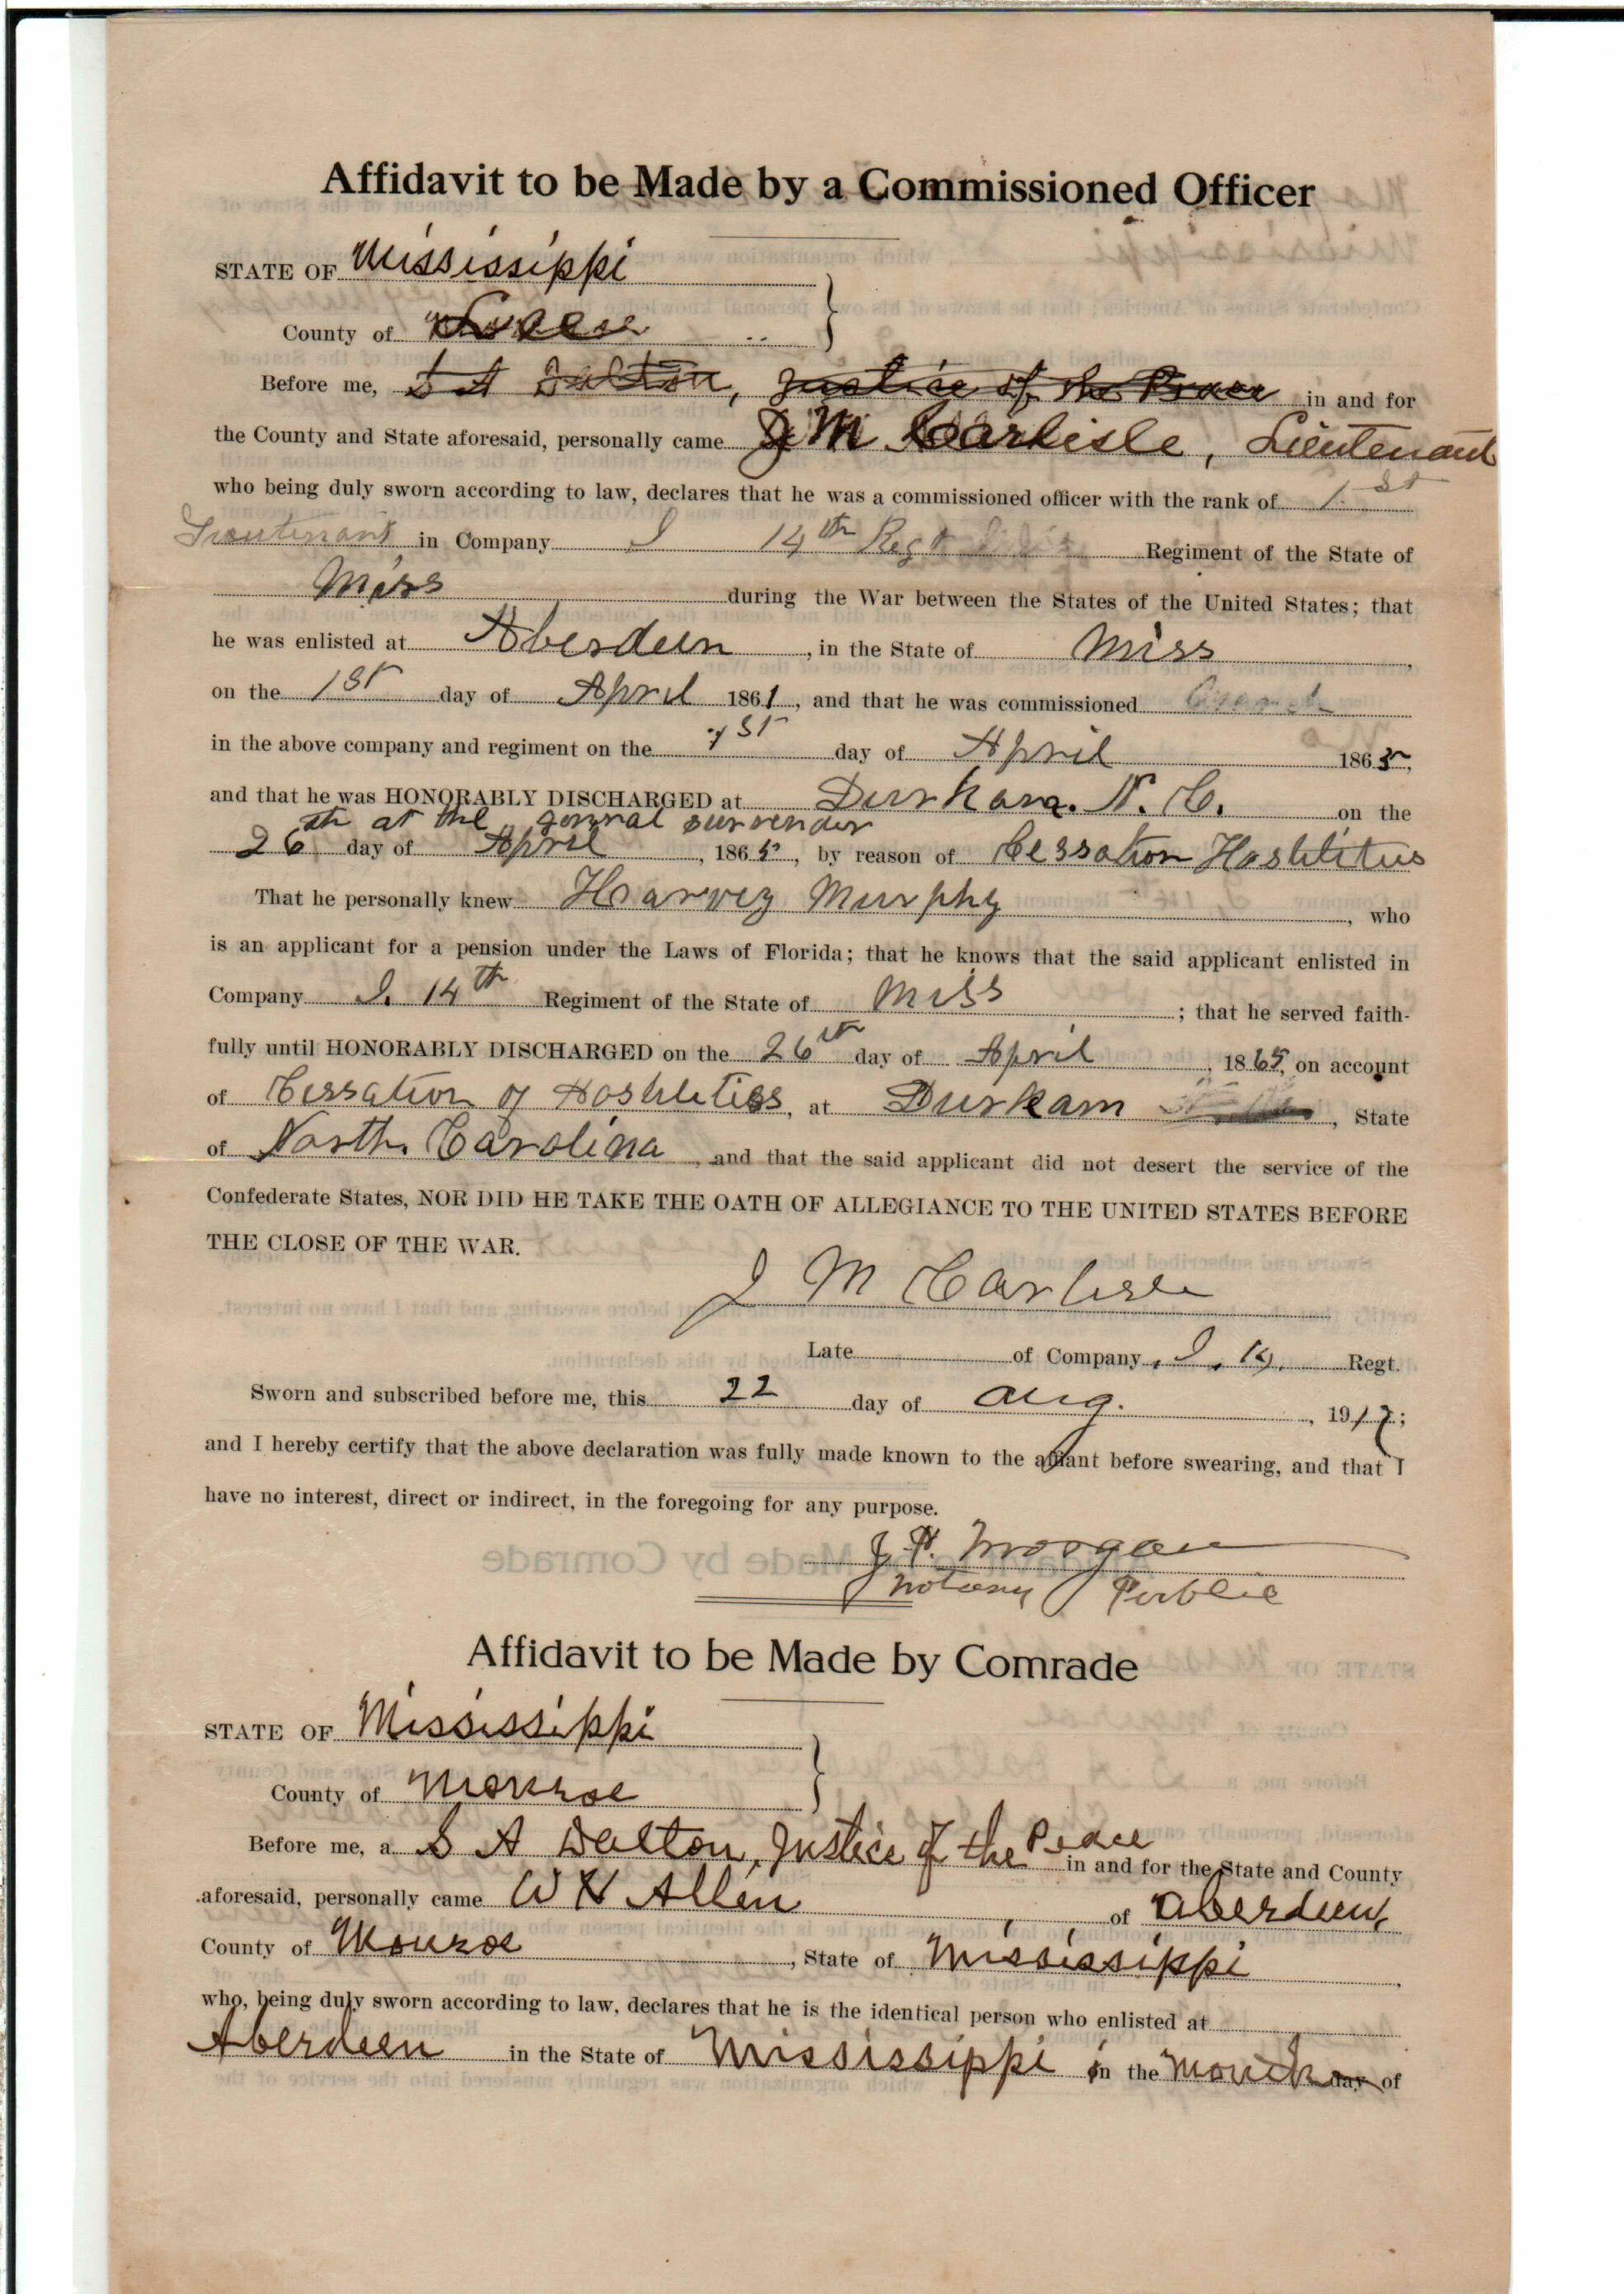 Affidavit to be Made by a Commissioned Officer
STATE OF Mississippi
County of
Before me, S A Dalton, Justice of the Peace in and for
the County and State aforesaid, personally came J M Carlisle, Lieutenant
who being duly sworn according to law, declares that he was a commissioned officer with the rank of 1st
Lieutenant in Company I 14th Regt Regiment of the State of
Miss during the War between the States of the United States; that
he was enlisted at Aberdeen, in the State of Miss,
on the 1st day of April 1861, and that he was commissioned
in the above company and regiment on the 1st day of April 1865,
and that he was HONORABLY DISCHARGED at Durham. N. C. on the
th at the general surrender
26 day of April, 1865, by reason of Cessation Hostilitus
That he personally knew Harvey Murphy, who
is an applicant for a pension under the Laws of Florida; that he knows that the said applicant enlisted in
Company I. 14th Regiment of the State of Miss; that he served faith-
fully until HONORABLY DISCHARGED on the 26th day of April, 1865, on account
of Cessation of Hostilities, at Durham, State
of North Carolina, and that the said applicant did not desert the service of the
Confederate States, NOR DID HE TAKE THE OATH OF ALLEGIANCE TO THE UNITED STATES BEFORE
THE CLOSE OF THE WAR.
J M Carlisle
Late of Company I. 14. Regt.
Sworn and subscribed before me, this 22 day of Aug., 1917;
and I hereby certify that the above declaration was fully made known to the affiant before swearing, and that I
have no interest, direct or indirect, in the foregoing for any purpose.
J. H. Morgan
Notary Public
Affidavit to be Made by Comrade
STATE OF Mississippi
County of Monroe
Before me, a S A Dalton, Justice of the Peace in and for the State and County
aforesaid, personally came W H Allen, of Aberdeen,
County of Monroe, State of Mississippi,
who, being duly sworn according to law, declares that he is the identical person who enlisted at
Aberdeen in the State of Mississippi in the Month day of